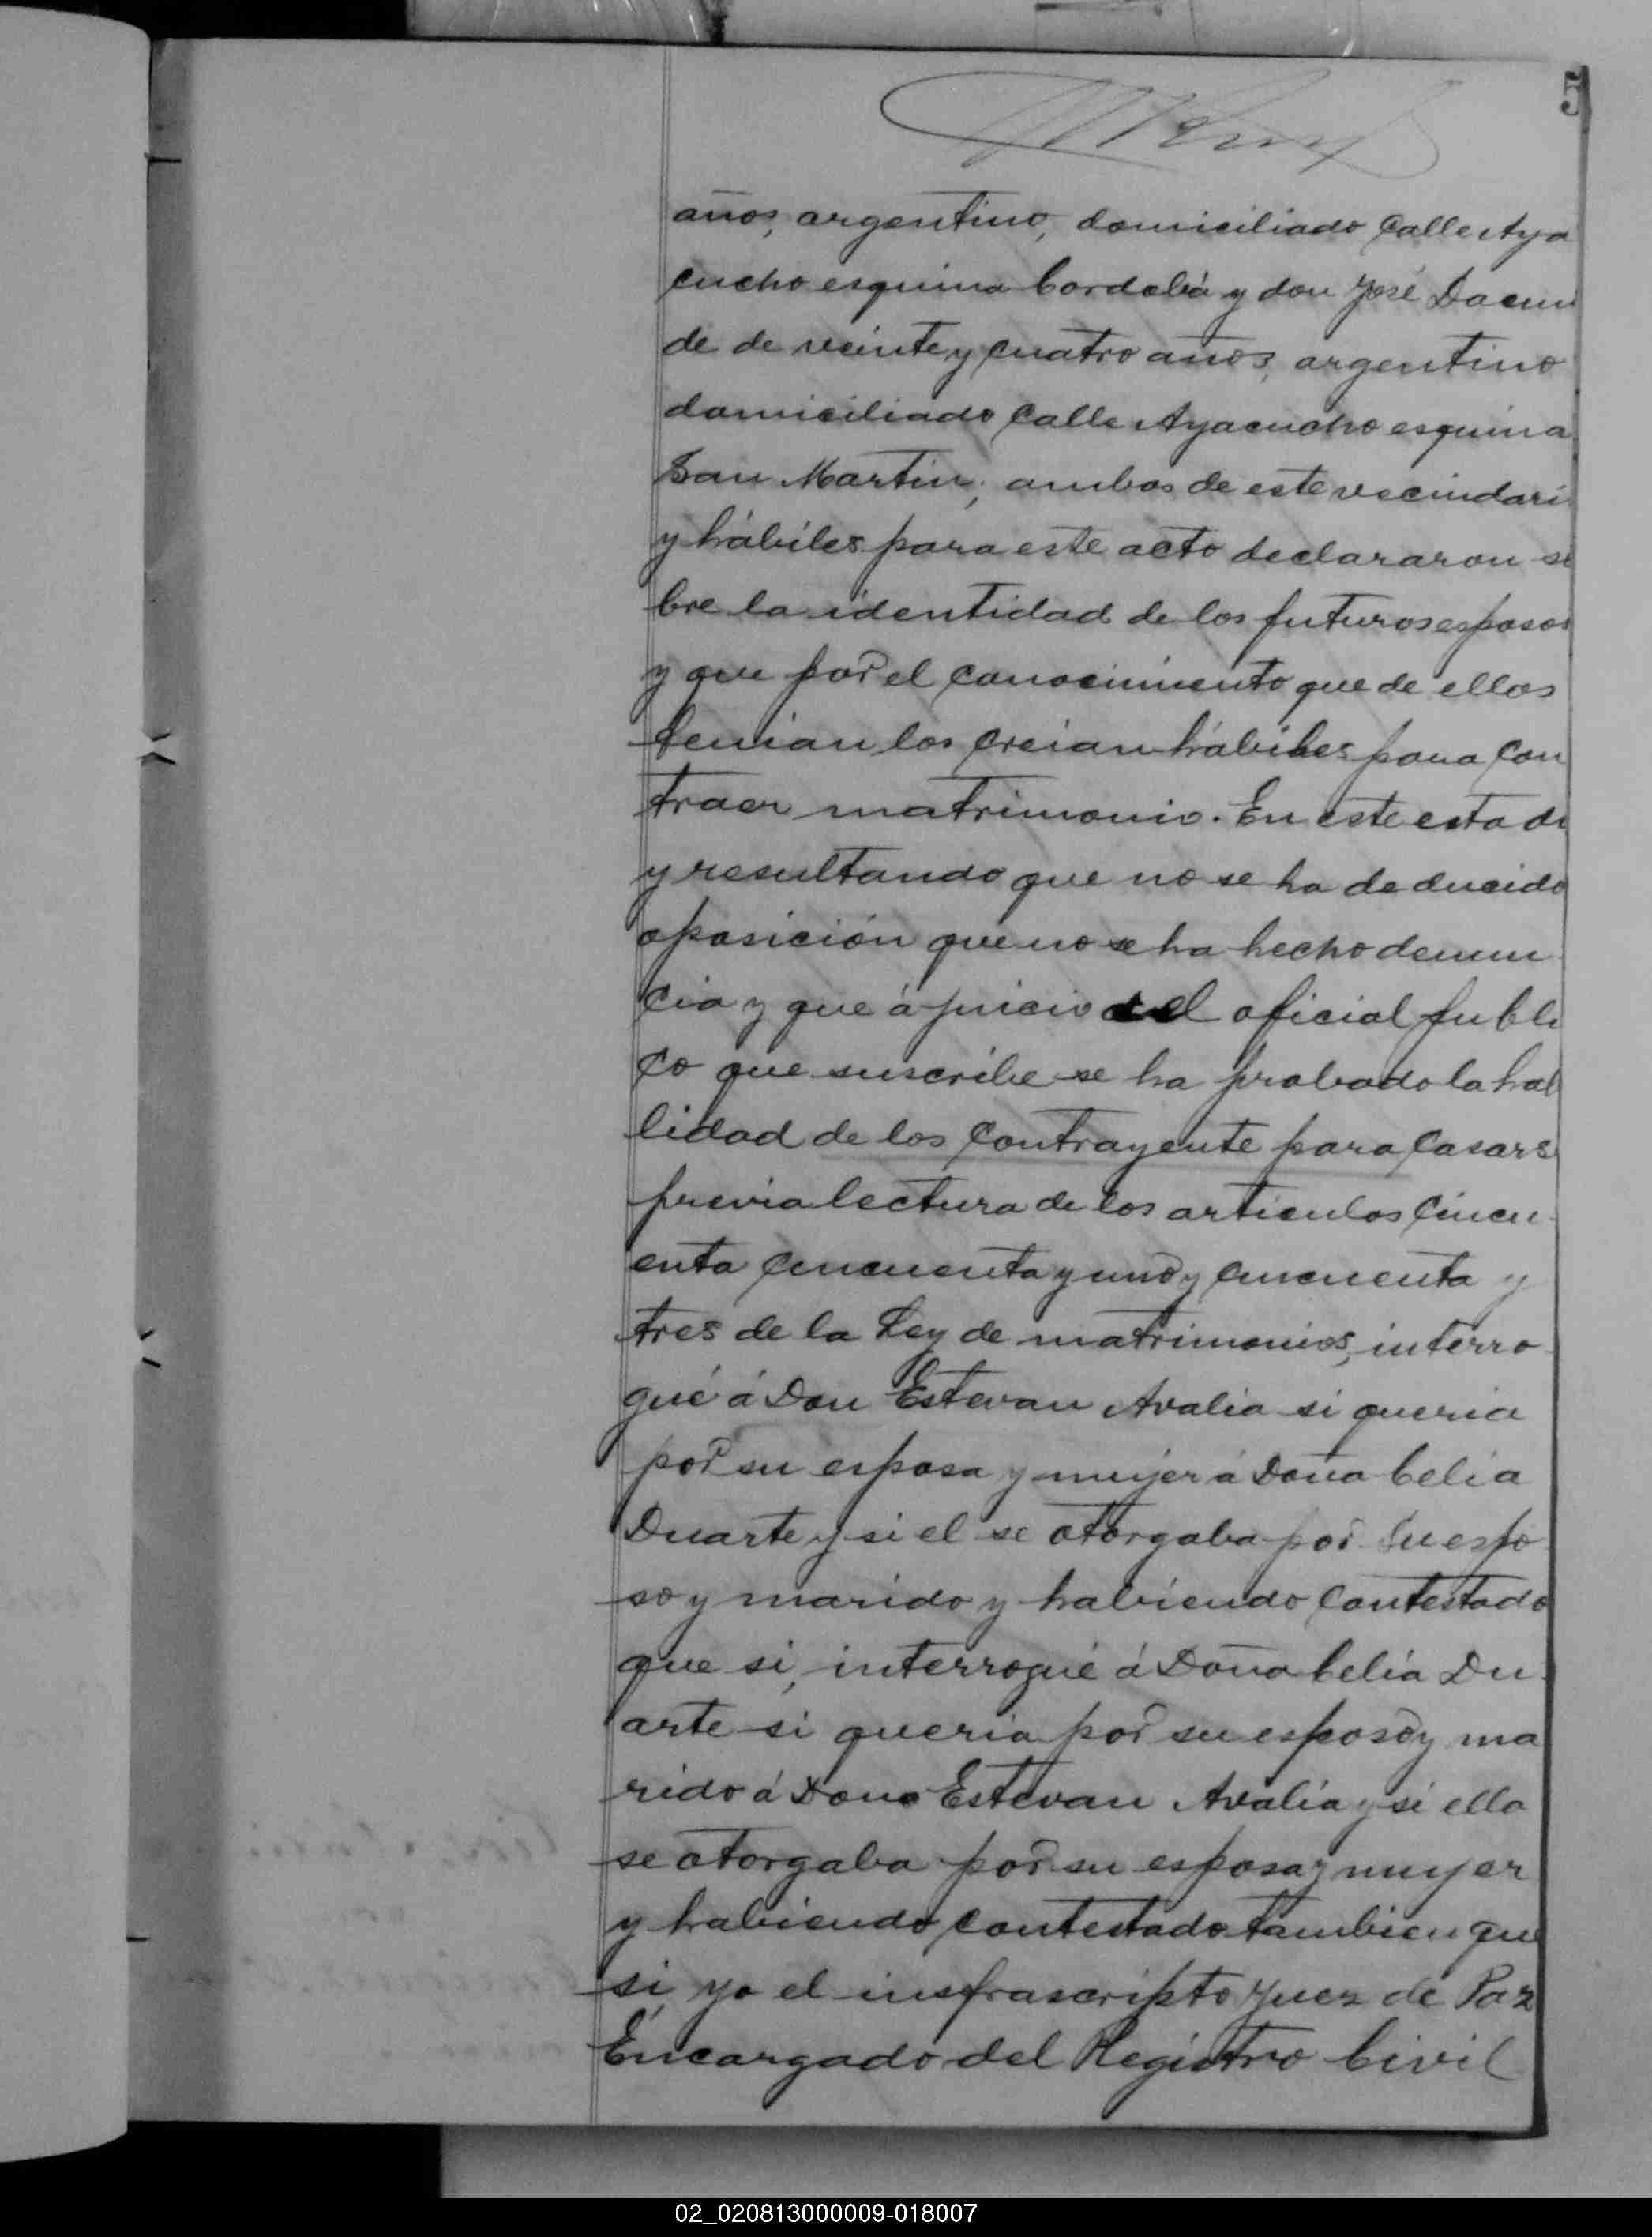 5
años, argentino, domiciliado Calle Aya
cucho esquina Cordobá y don José Dacun
de de veinte y cuatro años, argentino
domiciliado Calle Ayacucho esquina
San Martin; ambos de este vecindari
y hábiles para este acto declararon so
bre la identidad de los futuros esposos
y que por el conocimiento que de ellos
tenian los creian hábiles para Con
traer matrimonio. En este estado
y resultando que no se ha deducido
oposición que no se ha hecho denun
cia y que á juicio del oficial publi
co que suscribe se ha probado la habi
lidad de los Contrayente para Casars
previa lectura de los articulos Cincu
enta Cincuenta y uno y cincuenta y
tres de la Ley de matrimonios, interro
gué á Don Estevan Avalia si queria
por su esposa y mujer á Doña Celia
Duarte y si el se otorgaba por su espo
so y marido y habiendo Contestado
que si, interrogué á Doña Celia Du
arte si queria por su esposo y ma
rido á Dono Estevan Avalia y si ella
se otorgaba por su esposa y muyer
y habiendo Contestado tambien que
si, yo el insfrascripto Juez de Paz
Encargado del Registro Civil
02_020813000009-018007